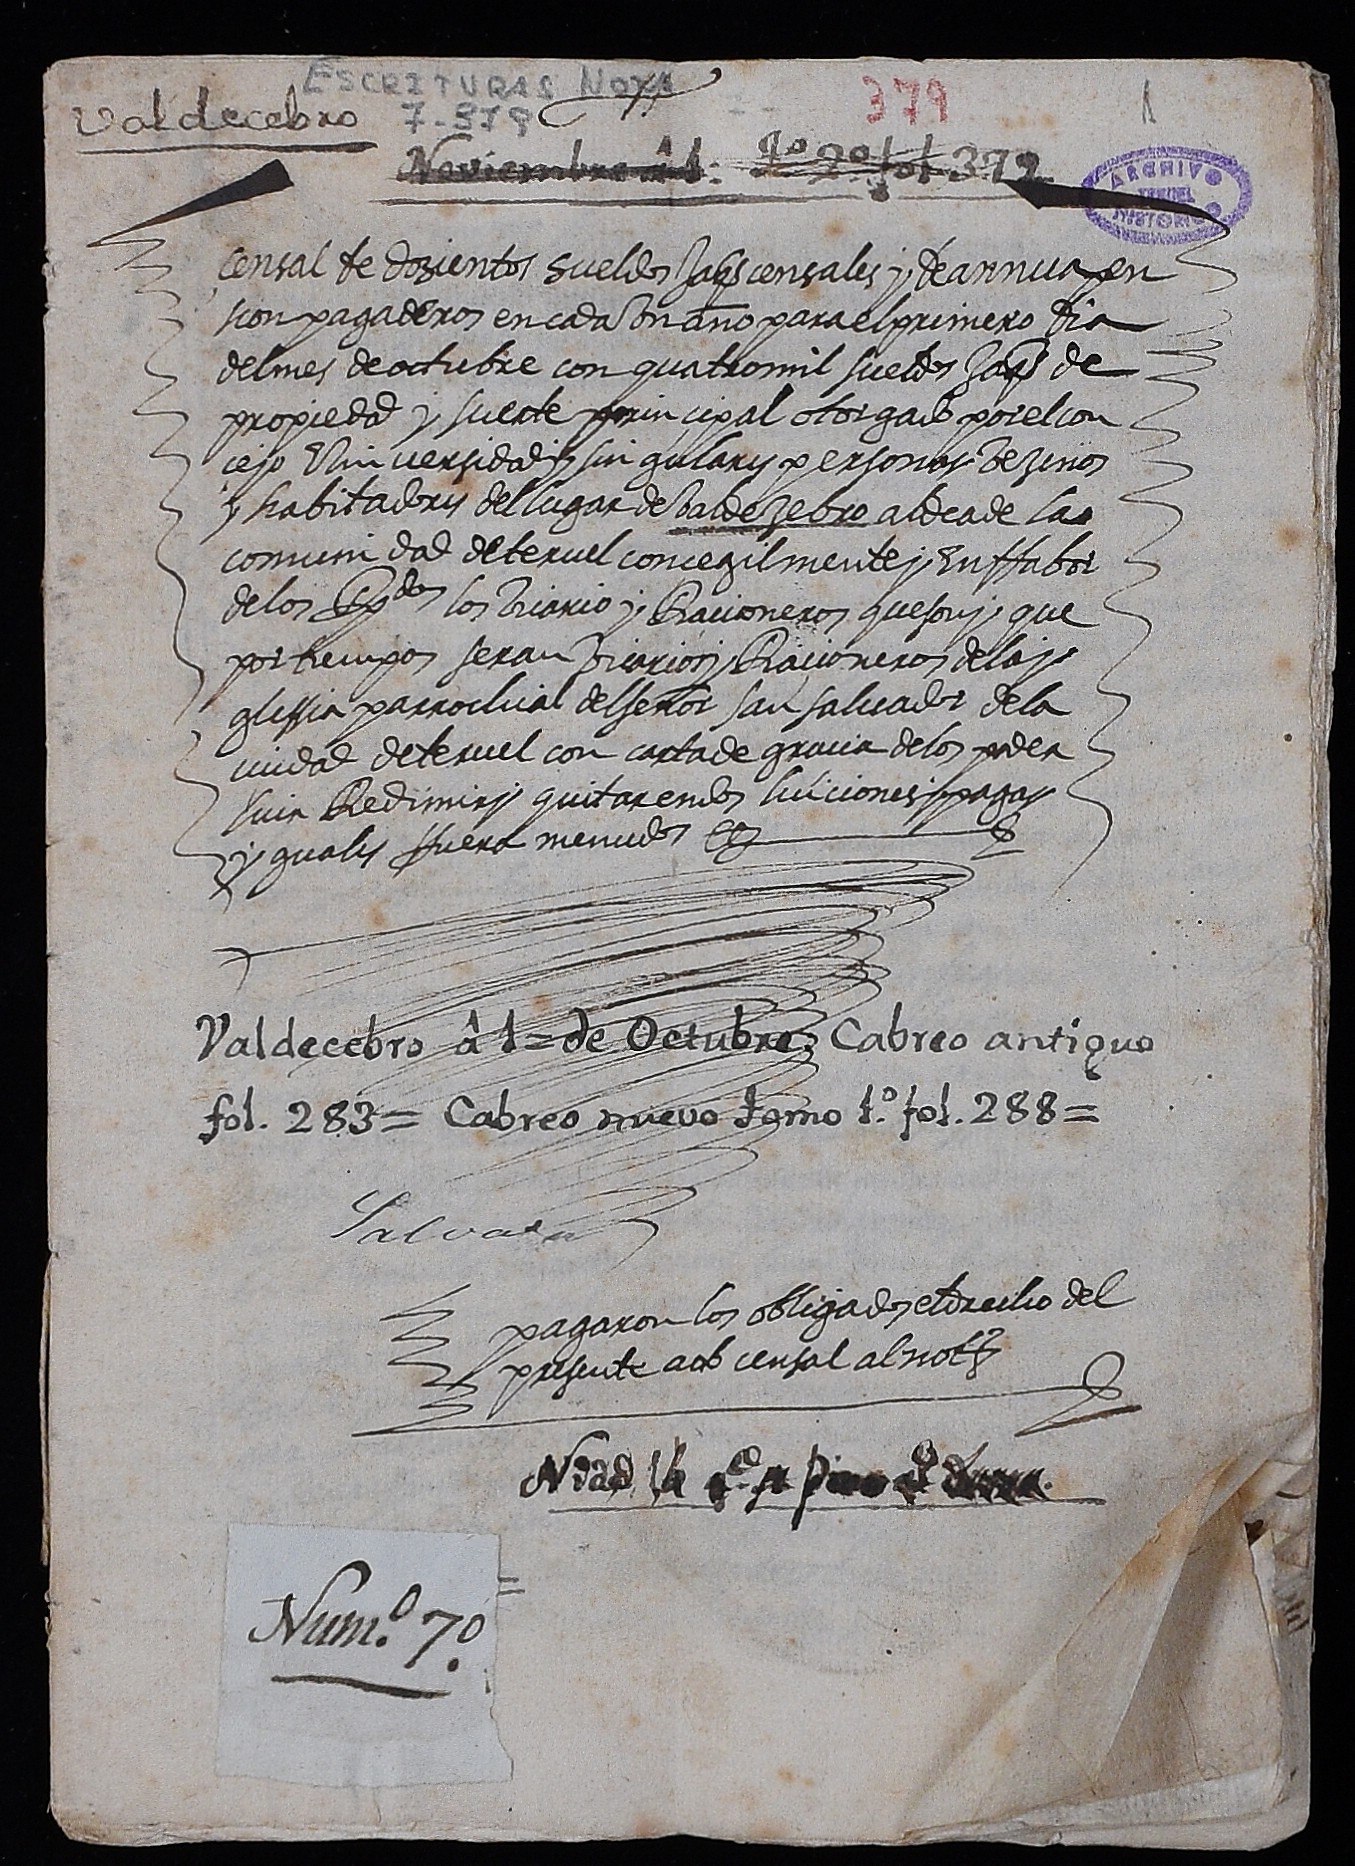 ESCRITURAS NOTA
7-379
379
1
Valdecebro
Noviembre â 1. Lº 2º fol 379
ARCHIVO
TERUEL
HISTORICO
Censal de dozientos sueldos Jaqs censales y de annua pen
sion pagaderos en cada vn año para el primero dia
del mes de octubre con quatromil sueldos Jaqs de
propiedad y suerte principal otorgado por el con
cejo Vniuersidad y singulares personas vezinos
y habitadores del lugar de valdezebro aldea de la
comunidad de teruel concegilmente y En ffabor
de los Rdos los vicario y Racioneros que son y que
por tiempos seran vicarios y Racioneros de la y
glessia parrochial del señor san saluador de la
ciudad de teruel con carta de gracia de los poder
luir Redimir y quitar en dos luiciones y pagas
yguales ffuera menudos
Valdecebro â 1= de Octubre. Cabreo antiguo
fol. 283= Cabreo nuevo tomo 1.º fol. 288=
Salvador
pagaron los obligados el drecho del
presente acto censal al notº
Num.º 7º